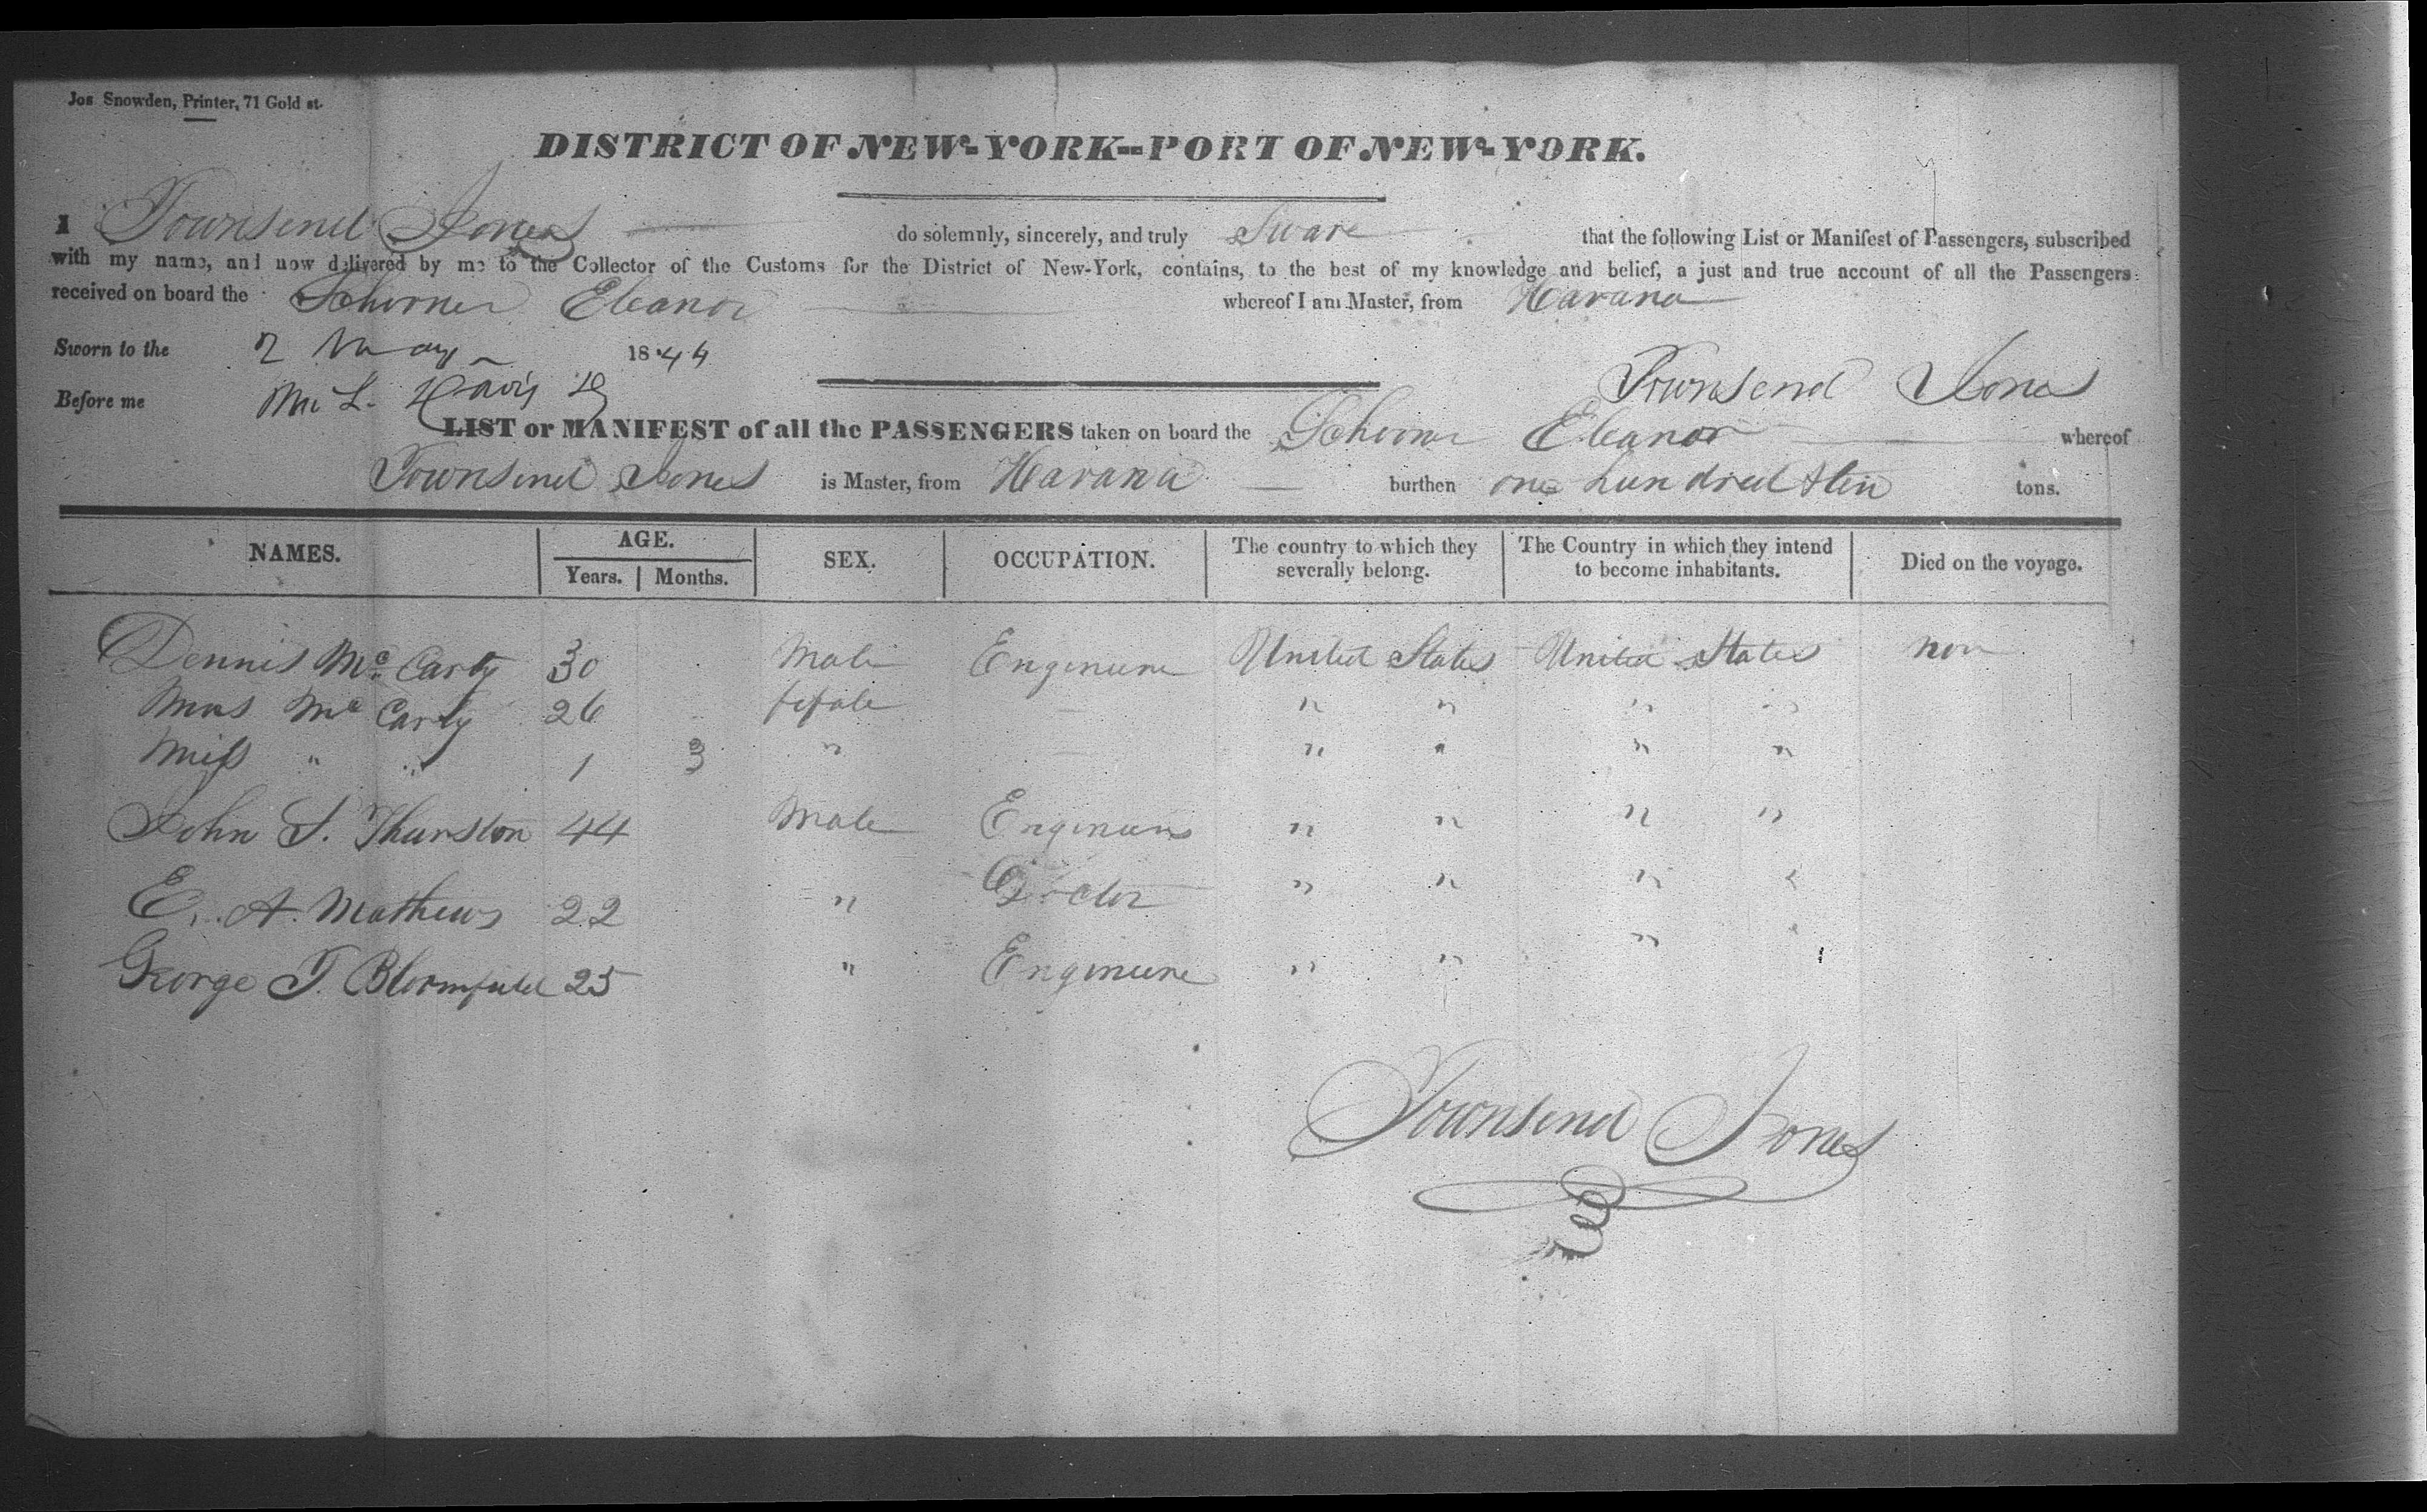 Jos Snowden, Printer, 71 Gold st.
DISTRICT OF NEW-YORK--PORT OF NEW-YORK.
I Townsend Jones do solemnly, sincerely, and truly Sware that the following List or Manifest of Passengers, subscribed
with my name, and now delivered by me to the Collector of the Customs for the District of New-York, contains, to the best of my knowledge and belief, a just and true account of all the Passengers
received on board the Schooner Eleanor whereof I am Master, from Havana
Sworn to the 2 May 1844
Before me M. L. Davis
Townsend Jones
LIST or MANIFEST of all the PASSENGERS taken on board the Schooner Eleanor whereof
Townsend Jones is Master, from Havana burthen one hundred & ten tons.
NAMES. AGE. Years. Months. SEX. OCCUPATION. The country to which they severally belong. The Country in which they intend to become inhabitants. Died on the voyage.
Dennis McCarty 30 Male Engineure United States United States non
Mrs McCarty 26 female " " " "
Miss " " 1 3 " " " " "
John S. Thurston 44 Male Engineure " " " "
E. A. Mathews 22 " Doctor " " " "
George T. Bloomfield 25 " Engineure " " " "
Townsend Jones